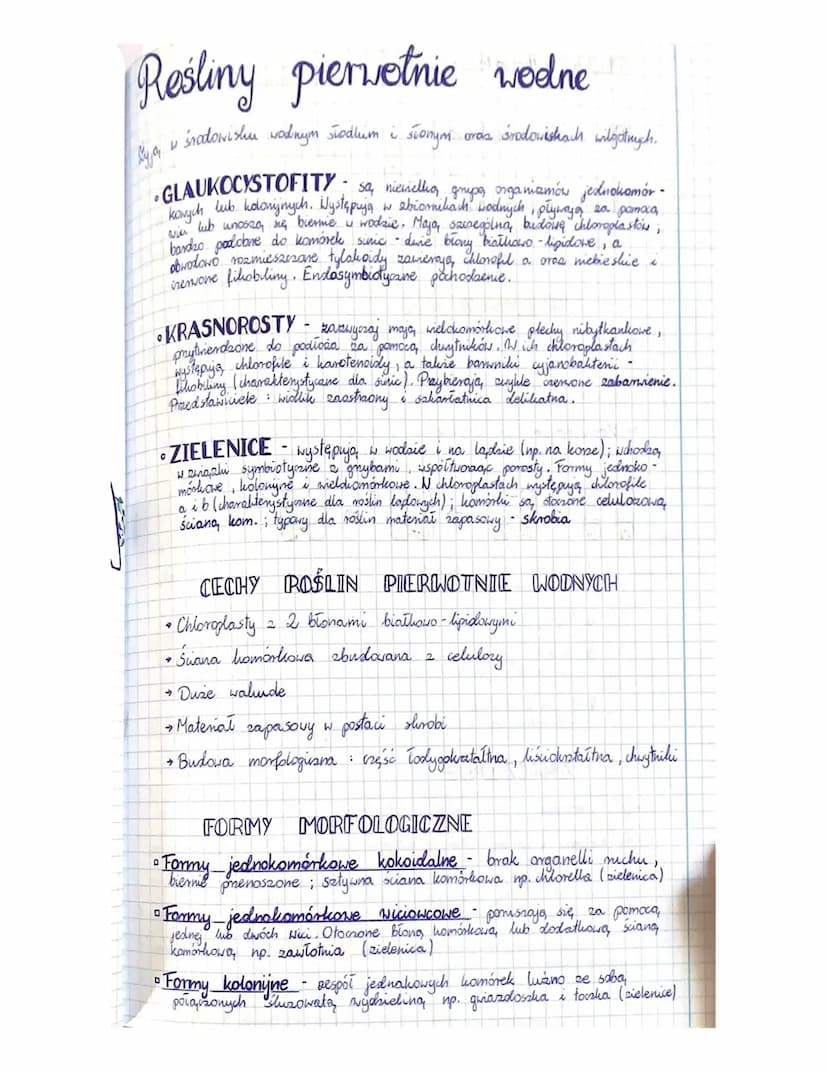 Rośliny pierwotnie wodne
Żyją w środowisku wodnym słodkim i słonym oraz środowiskach wilgotnych.
• GLAUKOCYSTOFITY - są niewielką grupą organizmów jednokomór-
kowych lub kolonijnych. Występują w zbiornikach wodnych, pływają za pomocą
wici lub unoszą się biernie w wodzie. Mają szczególną budowę chloroplastów,
bardzo podobne do komórek sinic - dwie błony białkowo-lipidowe, a
obwodowo rozmieszczone tylakoidy zawierają chlorofil a oraz niebieskie i
czerwone fikobiliny. Endosymbiotyczne pochodzenie.
• KRASNOROSTY - zazwyczaj mają wielokomórkowe plechy nibytkankowe,
przytwierdzone do podłoża za pomocą chwytników. W ich chloroplastach
występują chlorofile i karotenoidy, a także barwniki cyjanobakterii -
fikobiliny (charakterystyczne dla sinic). Przybierają zwykle czerwone zabarwienie.
Przedstawiciele : widlik zaostrzony i szkarłatnica delikatna.
• ZIELENICE - występują w wodzie i na lądzie (np. na korze); wchodzą
w związki symbiotyczne z grzybami, współtworząc porosty. Formy jednoko-
mórkowe, kolonijne i wielokomórkowe. W chloroplastach występują chlorofile
a i b (charakterystyczne dla roślin lądowych); komórki są otoczone celulozową
ścianą kom.; typowy dla roślin materiał zapasowy - skrobia
CECHY ROŚLIN PIERWOTNIE WODNYCH
→ Chloroplasty z 2 błonami białkowo-lipidowymi
→ Ściana komórkowa zbudowana z celulozy
→ Duże wakuole
→ Materiał zapasowy w postaci skrobi
→ Budowa morfologiczna : część łodygokształtna, liściokształtna, chwytniki
FORMY MORFOLOGICZNE
▫ Formy jednokomórkowe kokoidalne - brak organelli ruchu,
biernie przenoszone ; sztywna ściana komórkowa np. chlorella (zielenica)
▫ Formy jednokomórkowe wiciowcowe - poruszają się za pomocą
jednej lub dwóch wici. Otoczone błoną komórkową lub dodatkową ścianą
komórkową np. zawłotnia (zielenica)
▫ Formy kolonijne - zespół jednakowych komórek luźno ze sobą
połączonych śluzowatą wydzieliną np. gwiazdoszka i toczka (zielenice)